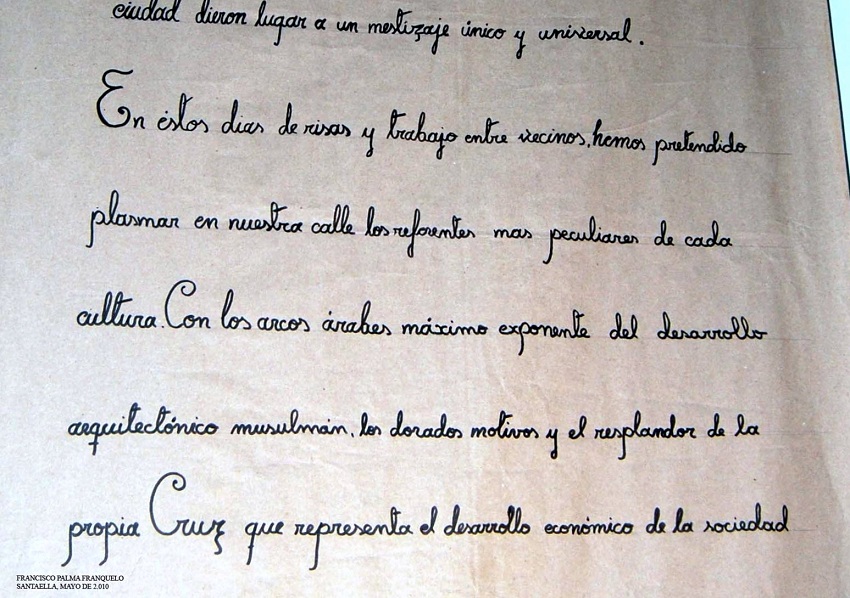 ciudad dieron lugar a un mestizaje único y universal.
En éstos dias de risas y trabajo entre vecinos, hemos pretendido
plasmar en nuestra calle los referentes mas peculiares de cada
cultura. Con los arcos árabes máximo exponente del desarrollo
arquitectónico musulmán, los dorados motivos y el resplandor de la
propia Cruz que representa el desarrollo económico de la sociedad
FRANCISCO PALMA FRANQUELO
SANTAELLA, MAYO DE 2.010